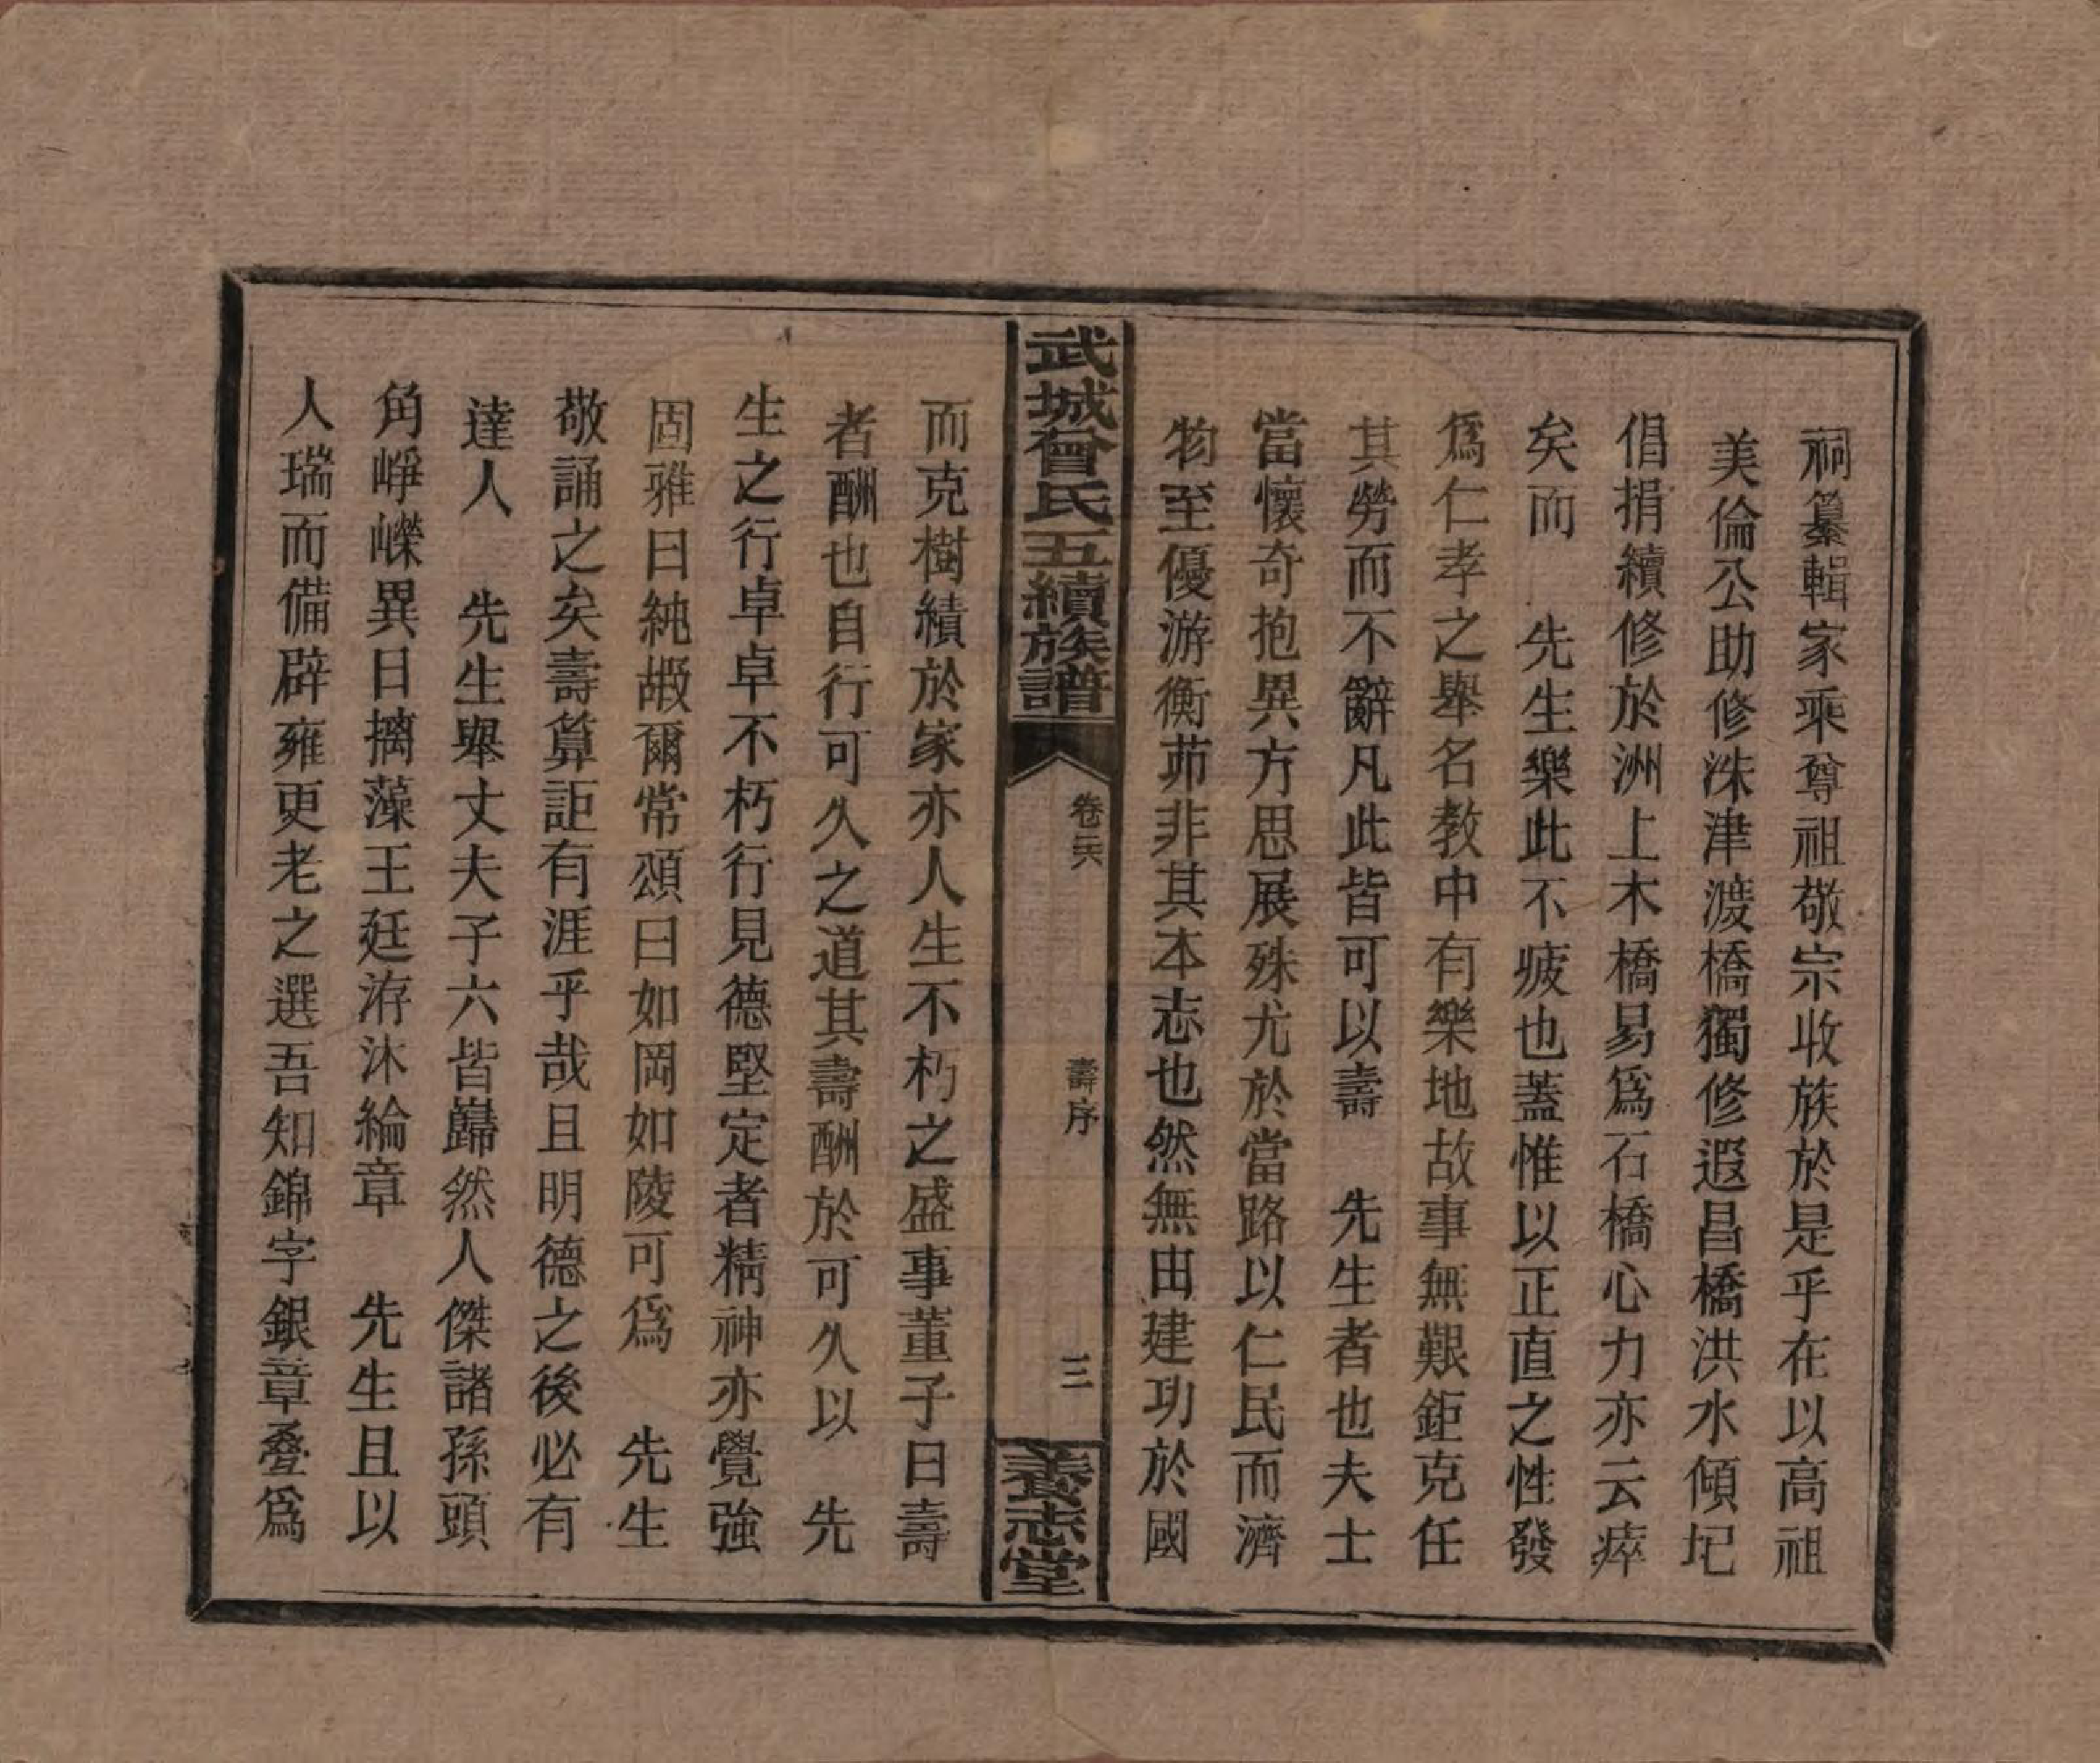 祠纂輯家乘尊祖敬宗收族於是乎在以高祖
美倫公助修洙津渡橋獨修遐昌橋洪水傾圮
倡捐續修於洲上木橋易爲石橋心力亦云瘁
矣而　先生樂此不疲也蓋惟以正直之性發
爲仁孝之舉名教中有樂地故事無艱鉅克任
其勞而不辭凡此皆可以壽　先生者也夫士
當懷奇抱異方思展殊尤於當路以仁民而濟
物至優游衡茆非其本志也然無由建功於國
武城曾氏五續族譜
卷六
壽序
三
養志堂
而克樹績於家亦人生不朽之盛事董子曰壽
者酬也自行可久之道其壽酬於可久以　先
生之行卓卓不朽行見德堅定者精神亦覺強
固雅曰純嘏爾常頌曰如岡如陵可爲　先生
敬誦之矣壽算詎有涯乎哉且明德之後必有
達人　先生舉丈夫子六皆巋然人傑諸孫頭
角崢嶸異日摛藻王廷洊沐綸章　先生且以
人瑞而備辟雍更老之選吾知錦字銀章叠爲